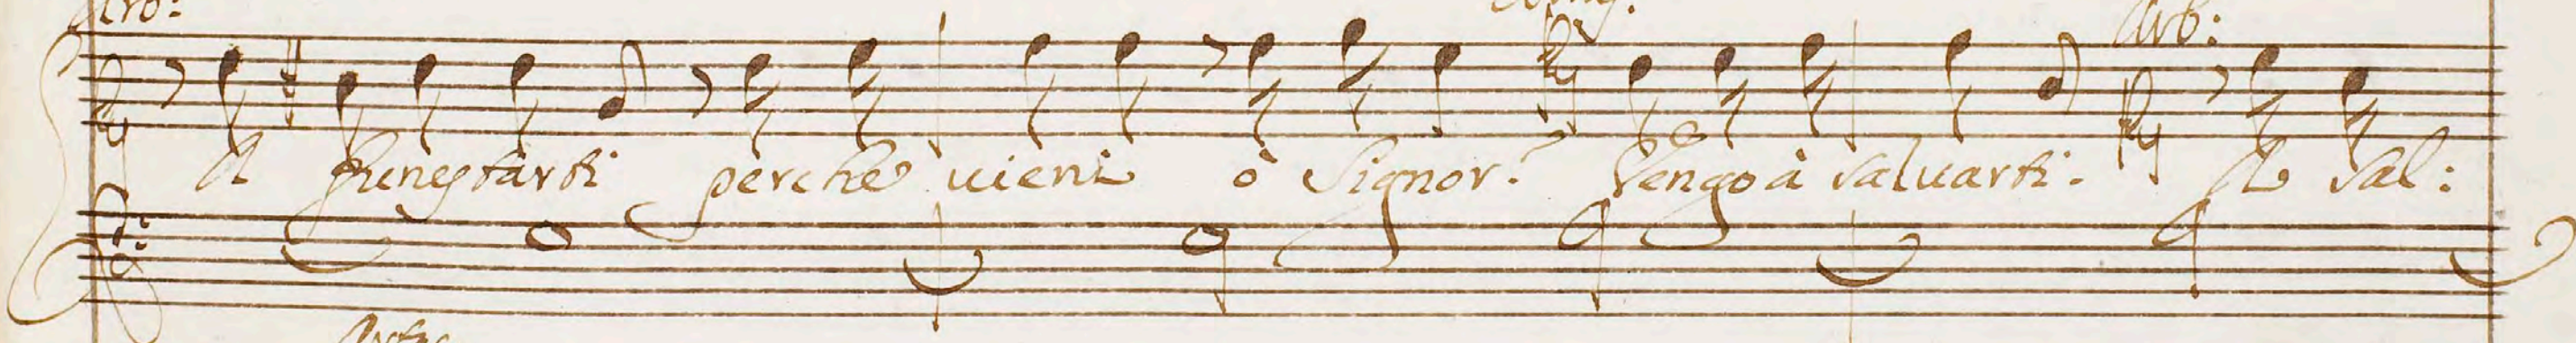 Arb:
A funestarti perche uieni ò Signor? Vengo à saluarti. A sal: